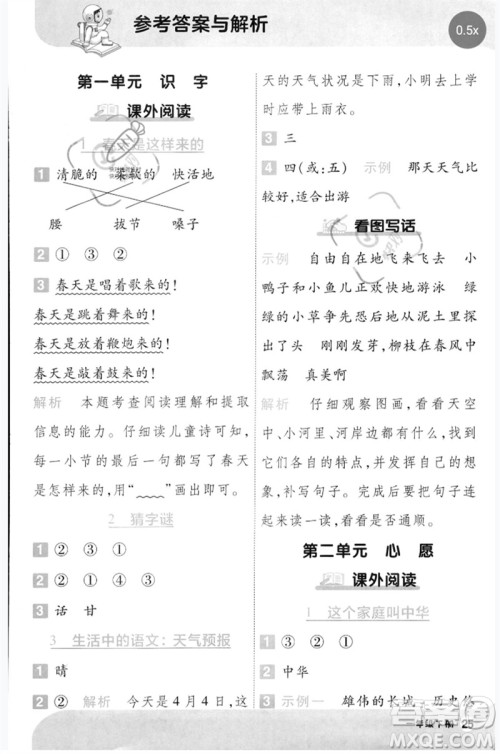 参考答案与解析
0.5x
第一单元 识 字
课外阅读
1 春天是这样来的
1 清脆的 柔软的 快活地
腰 拔节 嗓子
2 ① ③ ②
3 春天是唱着歌来的！
春天是跳着舞来的！
春天是放着鞭炮来的！
春天是敲着鼓来的！
解析 本题考查阅读理解和提取
信息的能力。仔细读儿童诗可知，
每一小节的最后一句都写了春天
是怎样来的，用“﹏﹏”画出即可。
2 猜字谜
1 ② ③ ①
2 ② ① ④ ③
3 话 甘
3 生活中的语文：天气预报
1 晴
2 ② 解析 今天是4月4日，这
天的天气状况是下雨，小明去上学
时应带上雨衣。
3 三
4 四（或：五） 示例 那天天气比
较好，适合出游
看图写话
示例 自由自在地飞来飞去 小
鸭子和妈妈正欢快地游泳 绿
绿的小草争先恐后地从土里探
出了头 刚刚发芽，柳枝在春风中
飘荡 真美啊
解析 仔细观察图画，看看天空
中、小河里、河岸边都有什么，抓
住它们各自的特点，并发挥想
象，补写句子。完成后要把句子
连起来读一读，看看是否通顺。
第二单元 心 愿
课外阅读
1 这个家庭叫中华
1 ③ ② ①
2 中华
3 示例一 雄伟的长城 历史悠
一年级下册 25